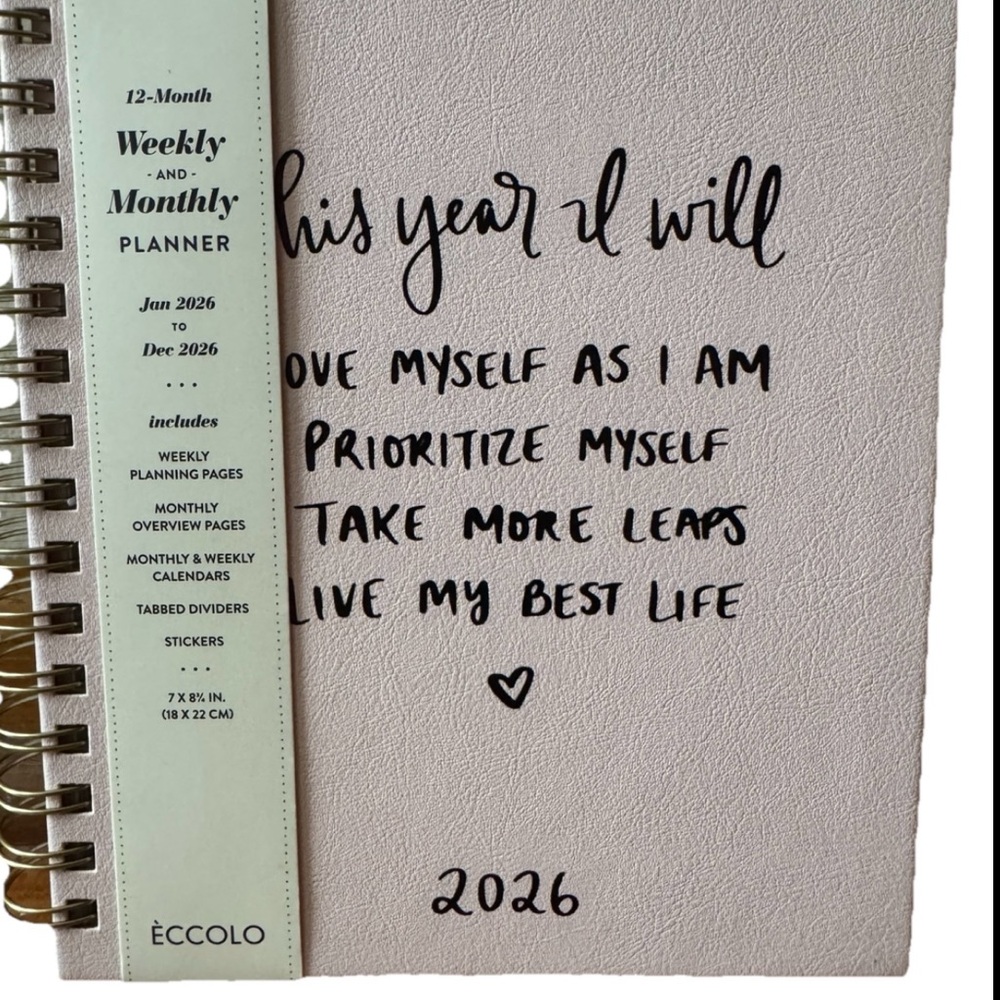 12-Month
Weekly
- AND -
Monthly
PLANNER
Jan 2026
TO
Dec 2026
...
includes
WEEKLY
PLANNING PAGES
MONTHLY
OVERVIEW PAGES
MONTHLY & WEEKLY
CALENDARS
TABBED DIVIDERS
STICKERS
...
7 X 8¾ IN.
(18 X 22 CM)
ÈCCOLO
his year I will
OVE MYSELF AS I AM
PRIORITIZE MYSELF
TAKE MORE LEAPS
LIVE MY BEST LIFE
2026